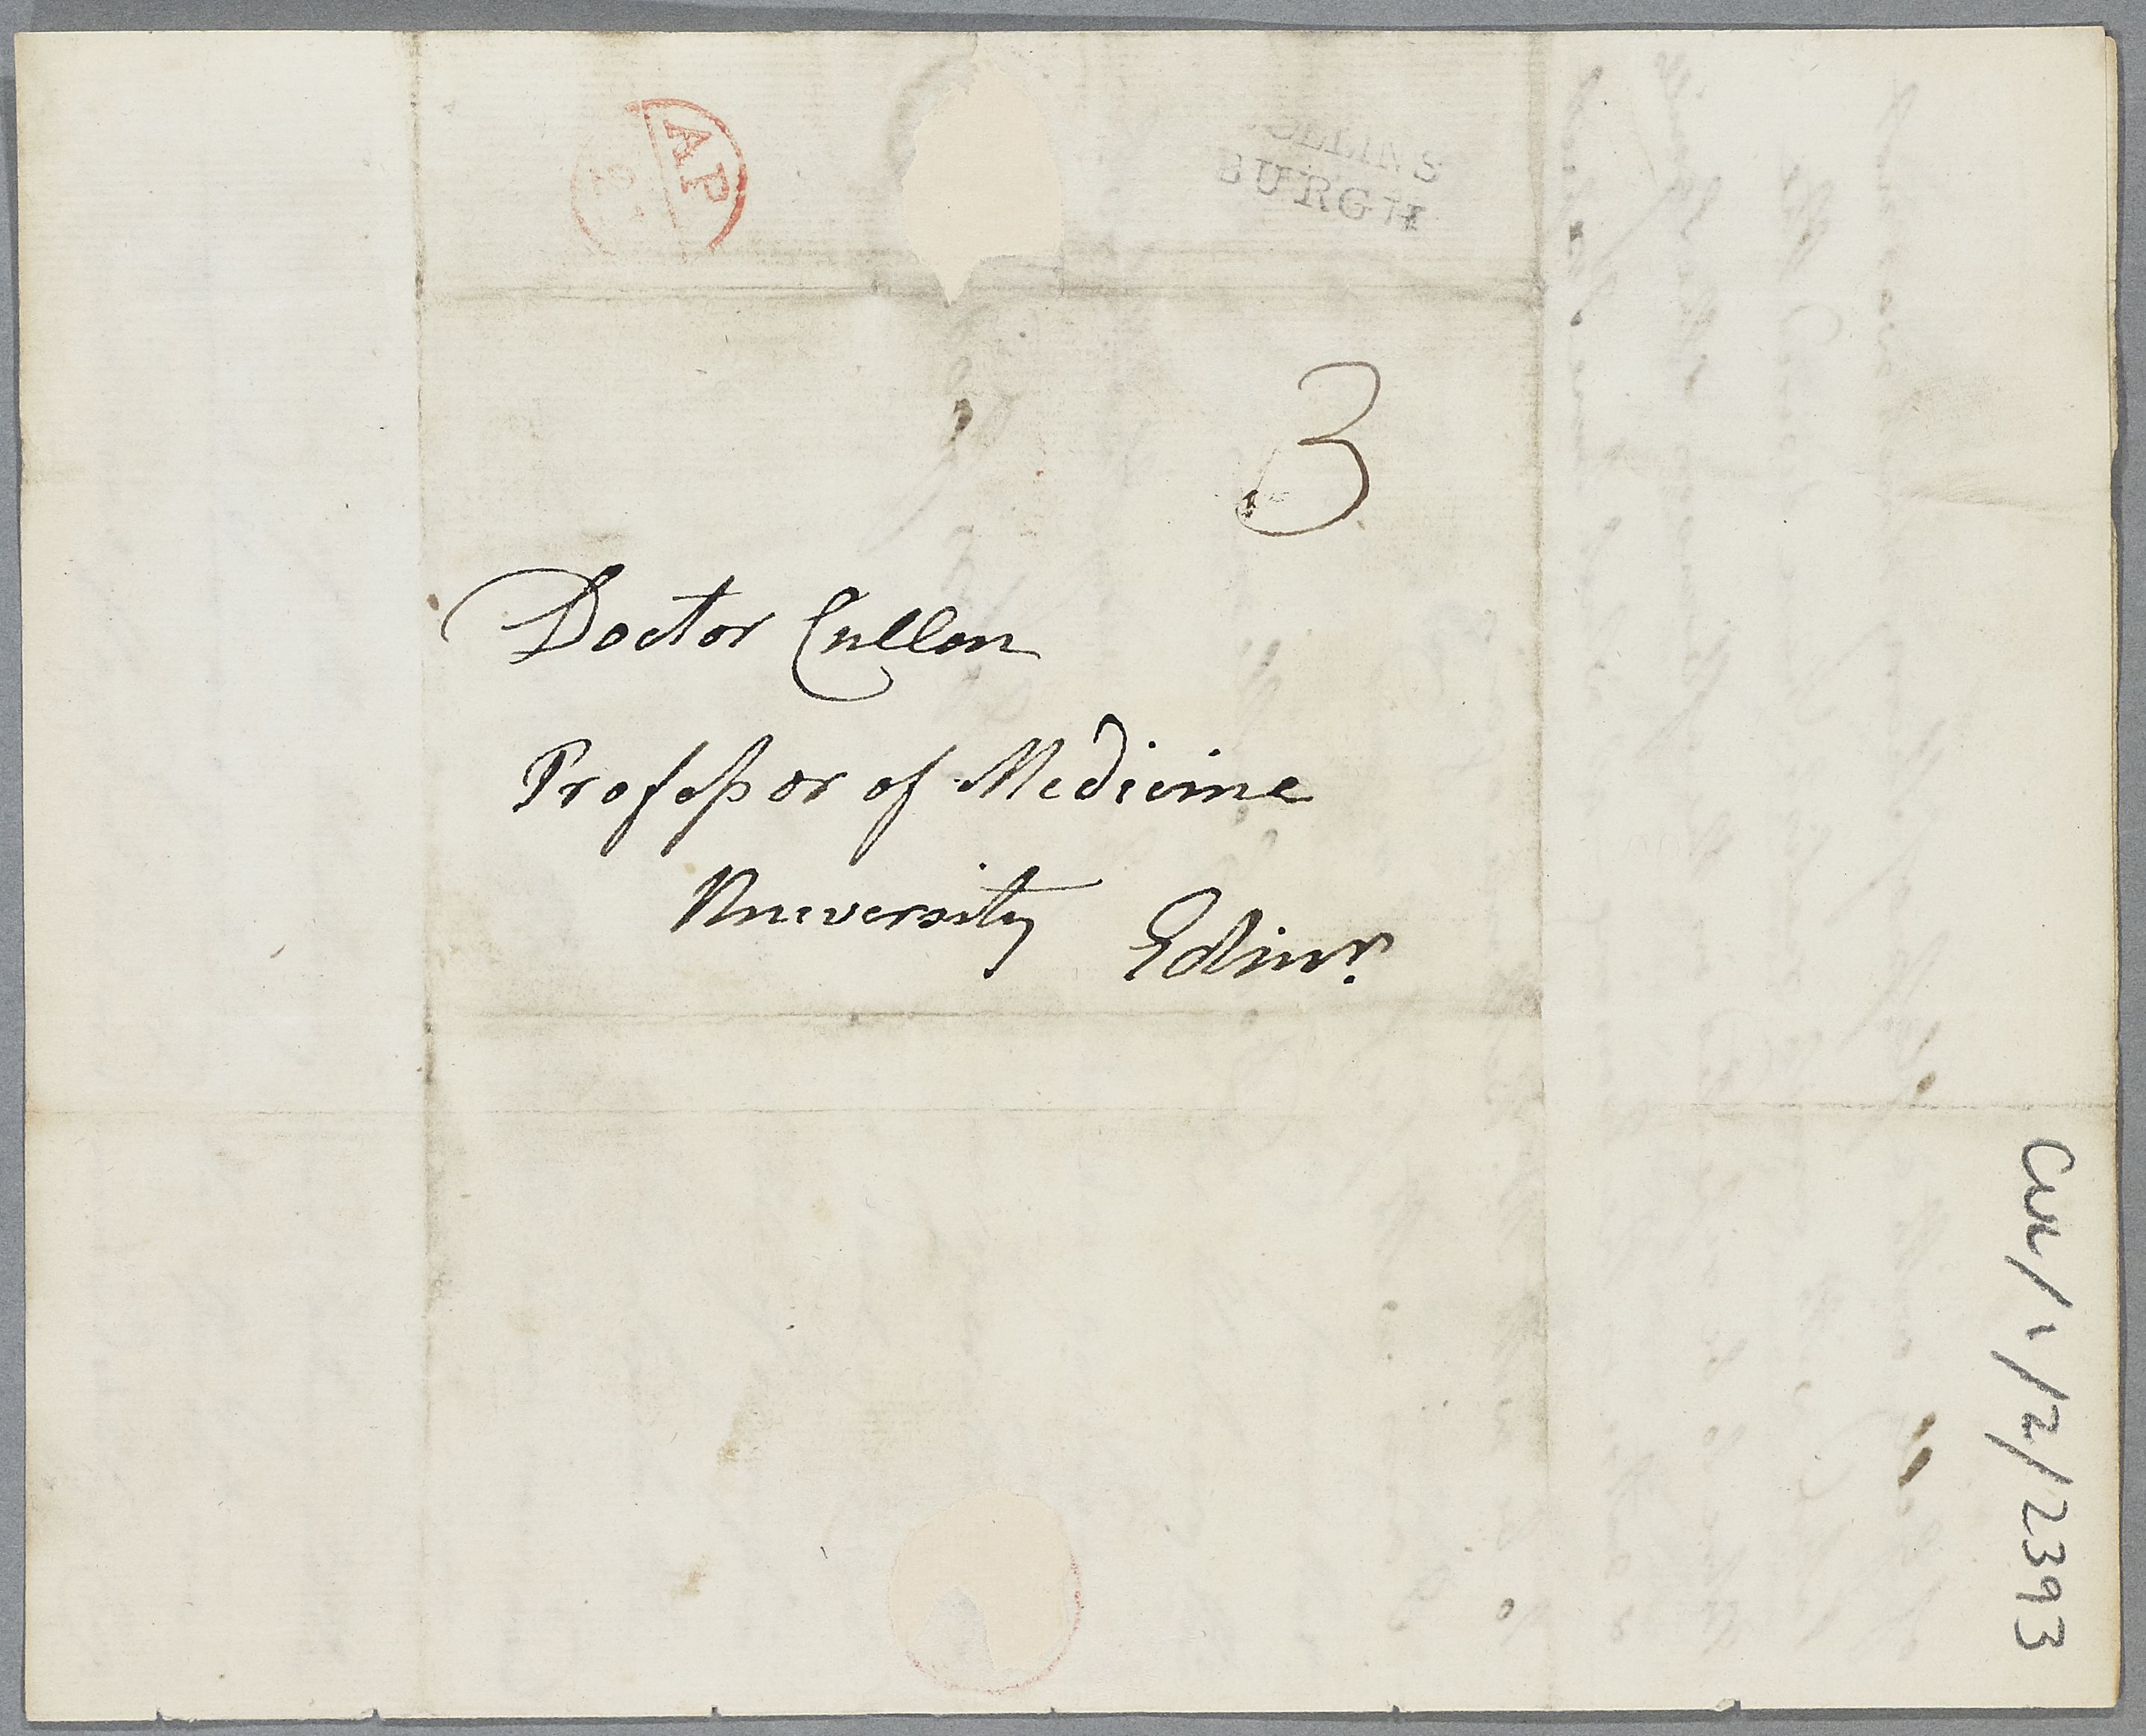 AP
COLLINS
BURGH
3
Doctor Cullen
Professor of Medicine
University Edinr.
CUL/1/2/2393